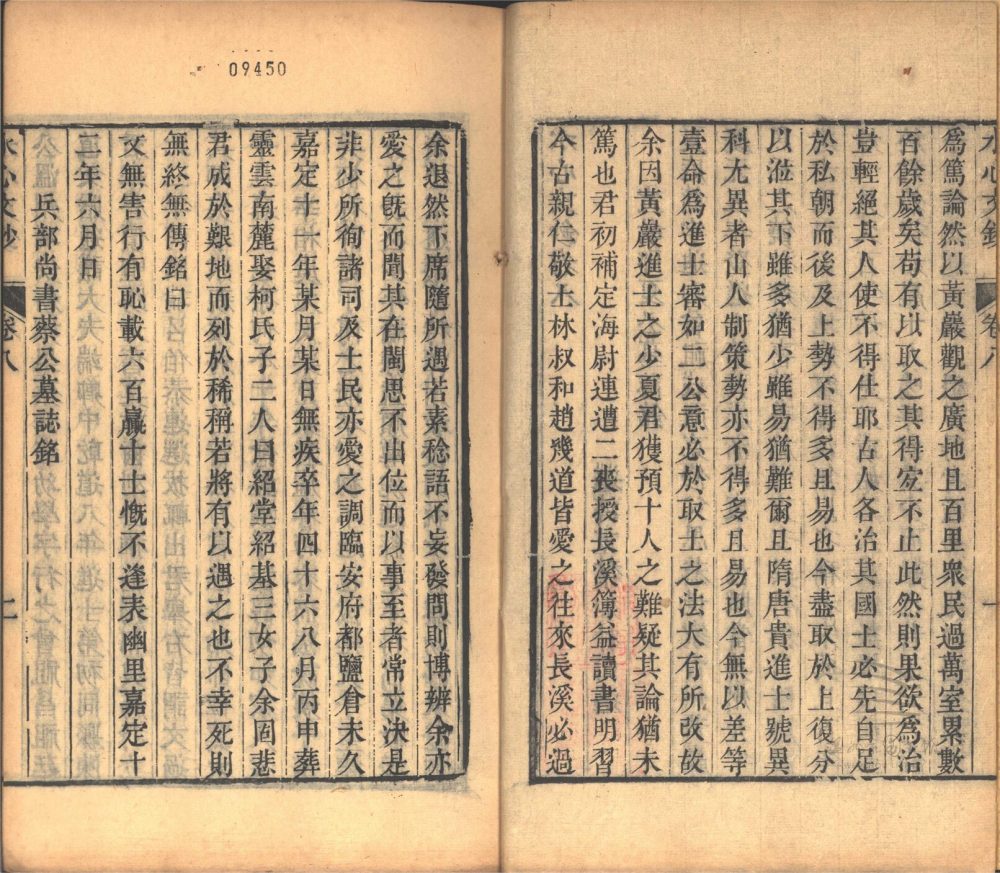 水心文鈔 卷八
為篤論然以黃巖觀之廣地且百里衆民過萬室累數
百餘歲矣苟有以取之其得㝎不止此然則果欲為治
豈輕絕其人使不得仕耶古人各治其國士必先自足
於私朝而後及上勢不得多且易也今盡取於上復分
以涖其下雖多猶少雖易猶難爾且隋唐貴進士號異
科尤異者山人制策勢亦不得多且易也今無以差等
壹命為進士審如二公意必於取士之法大有所改故
余因黃巖進士之少夏君獲預十人之難疑其論猶未
篤也君初補定海尉連遭二喪授長溪簿益讀書明習
今古親仁敬士林叔和趙幾道皆愛之往來長溪必過
09450
余退然下席隨所遇若素稔語不妄發問則博辨余亦
愛之旣而聞其在閩思不出位而以事至者常立決是
非少所徇諸司及士民亦愛之調臨安府都鹽倉未久
嘉定十年某月某日無疾卒年四十六八月丙申葬
靈雲南麓娶柯氏子二人曰紹堂紹基三女子余固悲
君成於艱地而列於稀稱若將有以遇之也不幸死則
無終無傳銘曰
文無害行有恥載六百贏十士慨不逢表幽里嘉定十
二年六月日
兵部尚書蔡公墓誌銘
水心文鈔 卷八 二